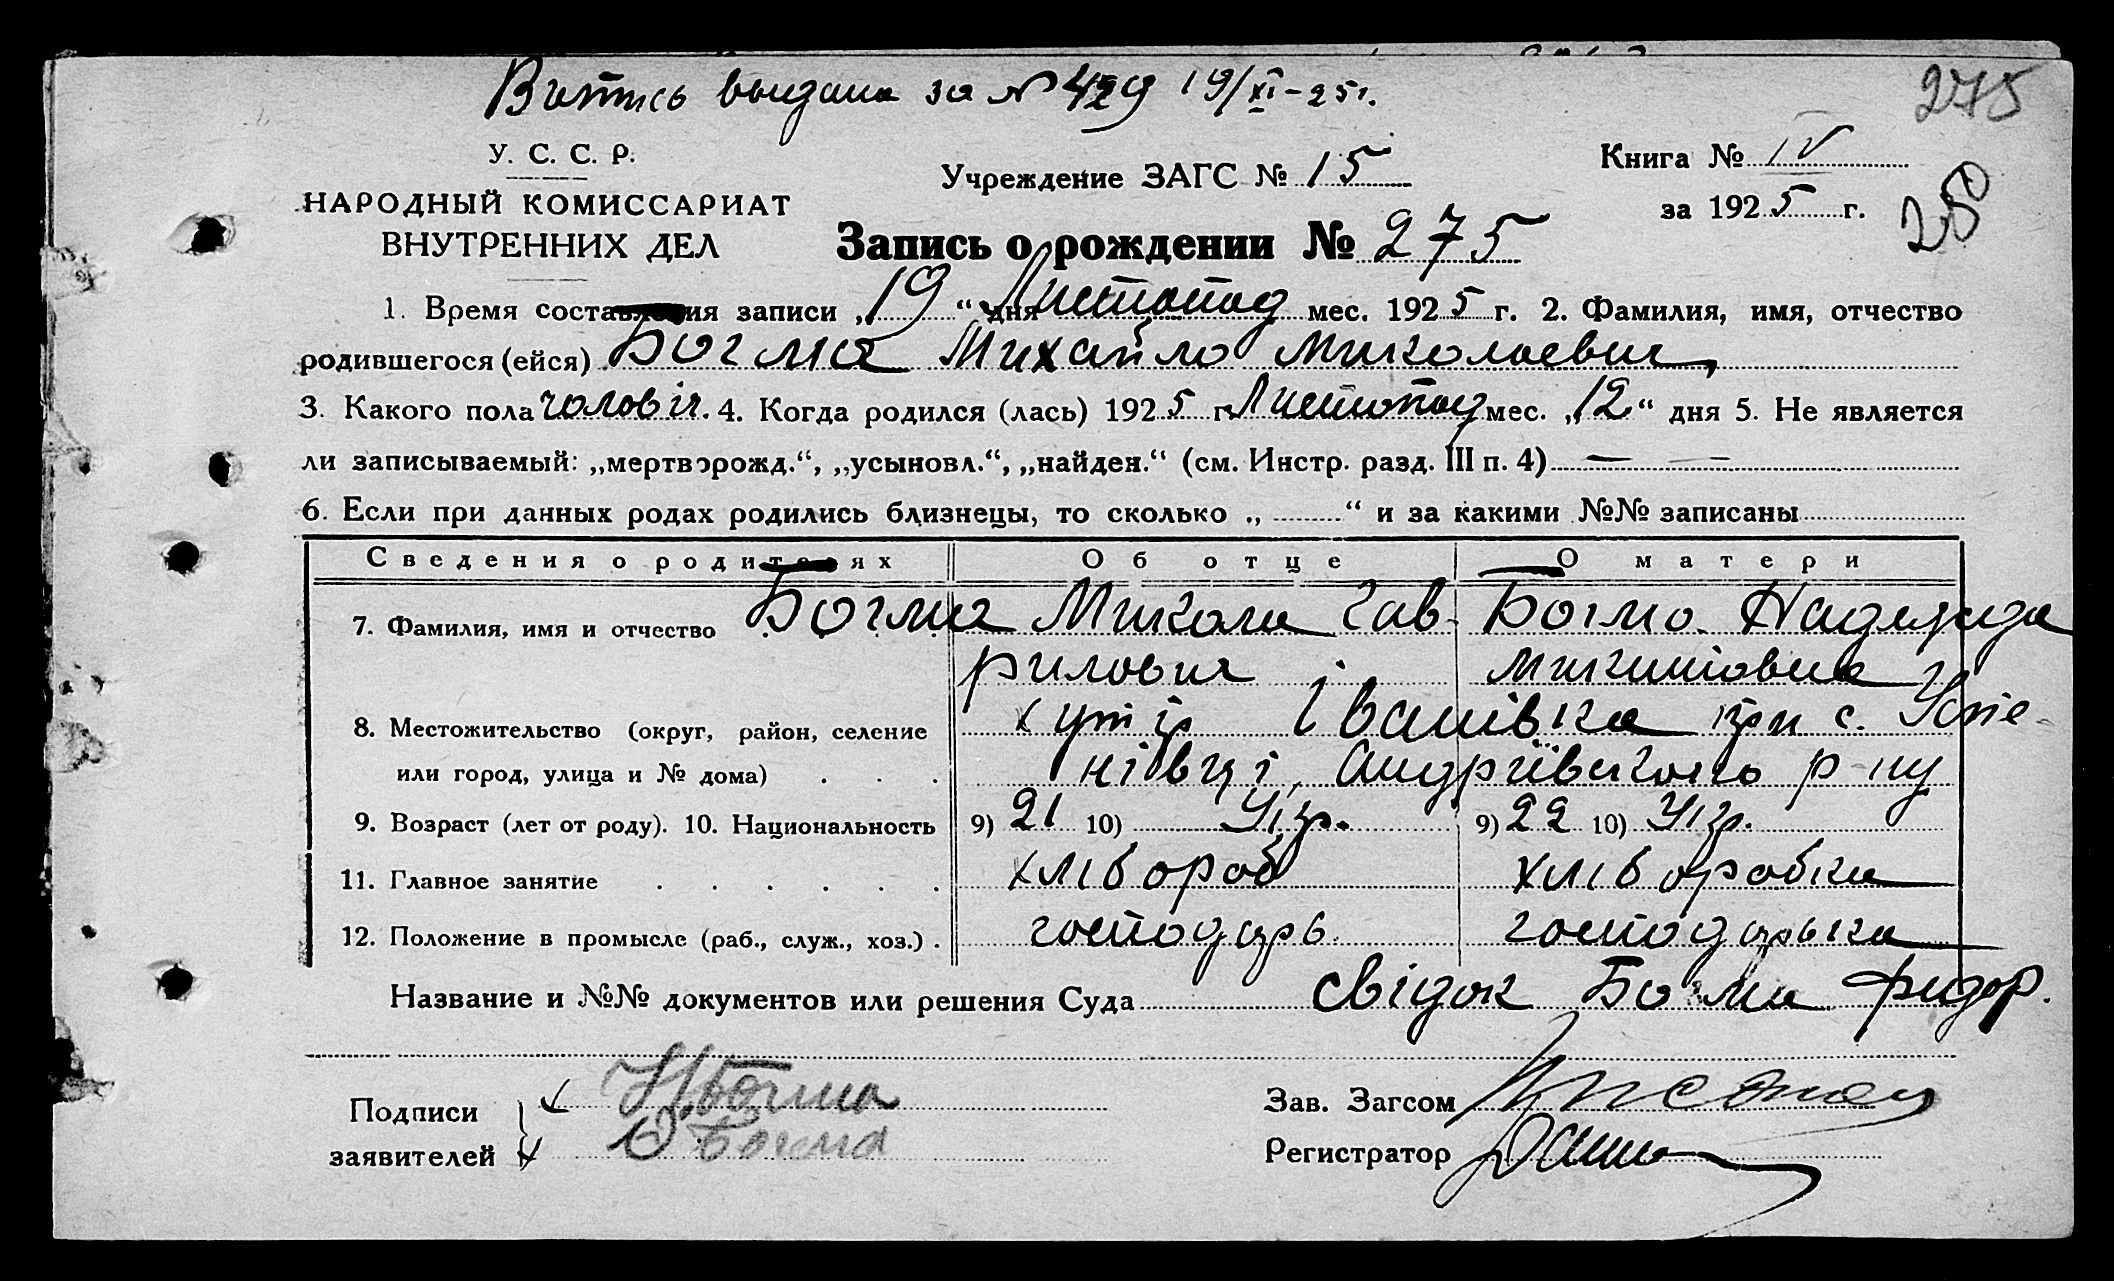 Витпись выдана за № 429 19/XI-25 г.
275
У. С. С. Р.
НАРОДНЫЙ КОМИССАРИАТ
ВНУТРЕННИХ ДЕЛ
Учреждение ЗАГС № 15
Книга № IV
за 1925 г.
250
Запись о рождении № 275
1. Время составления записи „19“ дня Листопад мес. 1925 г. 2. Фамилия, имя, отчество
родившегося (ейся) Богма Михайло Миколаевич
3. Какого пола чоловіч. 4. Когда родился (лась) 1925 г. Листопад мес. „12“ дня 5. Не является
ли записываемый: „мертворожд.“, „усыновл.“, „найден.“ (см. Инстр. разд. III п. 4) — —
6. Если при данных родах родились близнецы, то сколько „ “ и за какими №№ записаны
Сведения о родителях Об отце О матери
7. Фамилия, имя и отчество Богма Микола Гав- Богма Надежда
рилович Микитовна
8. Местожительство (округ, район, селение хутір Іванівка при с. Успе-
или город, улица и № дома) нівці, Андріївського р-ну
9. Возраст (лет от роду). 10. Национальность 9) 21 10) Укр. 9) 22 10) Укр.
11. Главное занятие хлібороб хліборобка
12. Положение в промысле (раб., служ., хоз.) . господарь господарька
Название и №№ документов или решения Суда свідок Богма Фидор.
Подписи Н Богма
заявителей Богма
Зав. Загсом
Регистратор